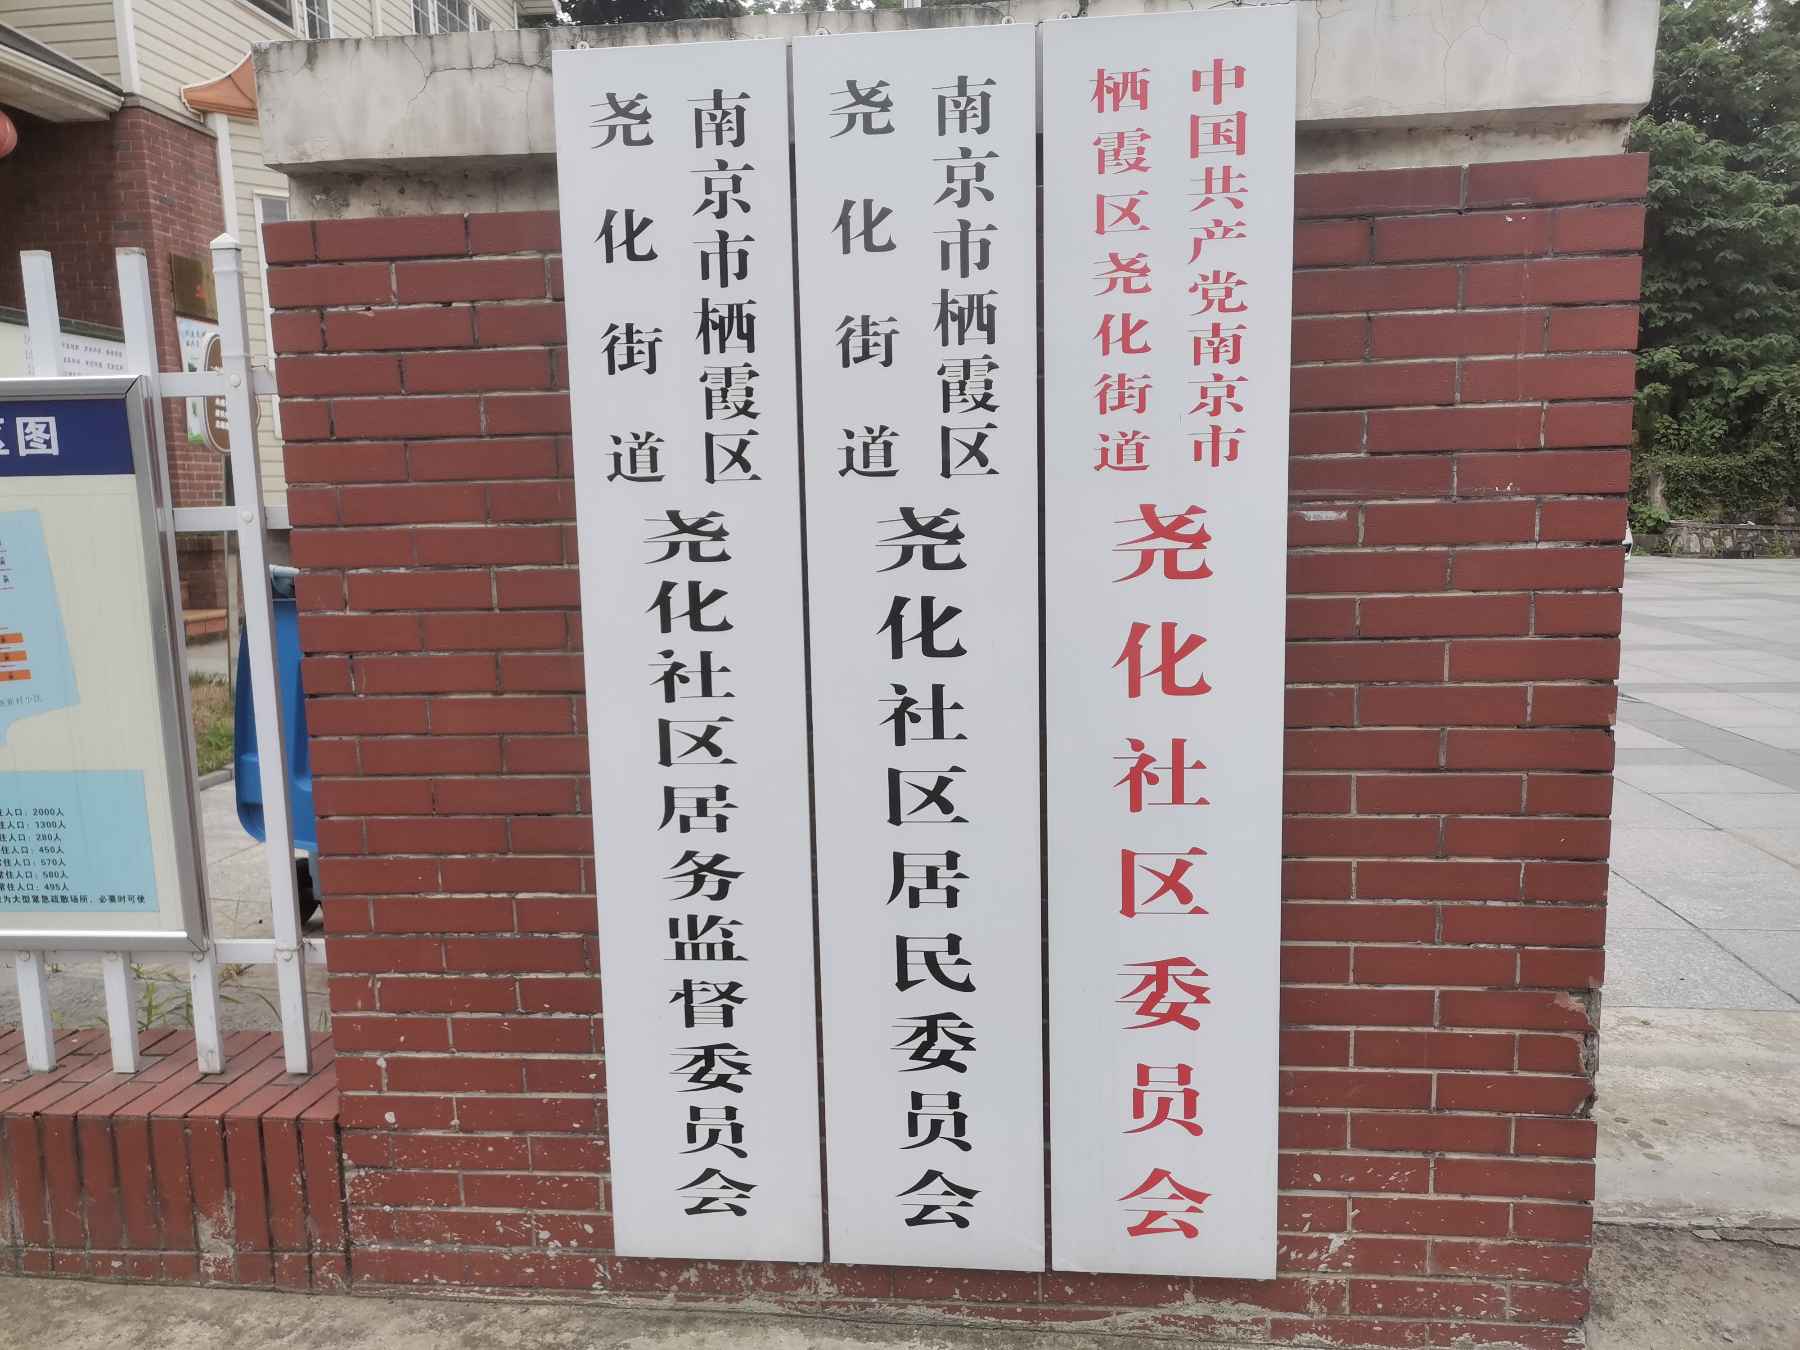 中国共产党南京市
栖霞区尧化街道
尧化社区委员会
南京市栖霞区
尧化街道
尧化社区居民委员会
南京市栖霞区
尧化街道
尧化社区居务监督委员会
区图
住人口：2000人
住人口：1300人
住人口：280人
住人口：450人
常住人口：570人
常住人口：580人
常住人口：495人
为大型紧急疏散场所，必要时可使